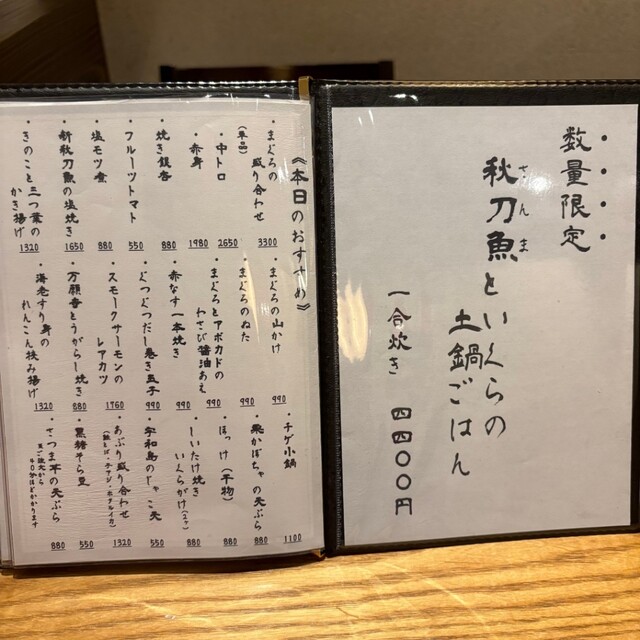 《本日のおすすめ》
・まぐろの
盛り合わせ
3300
(単品)
・中トロ
2650
・赤身
1980
・焼き銀杏
880
・フルーツトマト
550
・塩モツ煮
880
・新秋刀魚の塩焼き
1650
・きのこと三つ葉の
かき揚げ
1320
・まぐろの山かけ
990
・まぐろのぬた
990
・まぐろとアボカドの
わさび醤油あえ
990
・赤なす一本焼き
990
・ぐつぐつだし巻き玉子
990
・スモークサーモンの
レアカツ
1760
・万願寺とうがらし焼き
880
・海老すり身の
れんこん挟み揚げ
1320
・チゲ小鍋
1100
・栗かぼちゃの天ぷら
880
・ほっけ(干物)
880
・しいたけ焼き
いくらがけ
880
・宇和島のじゃこ天
550
・あぶり盛り合わせ
1320
・黒糖そら豆
550
・さつま芋の天ぷら
880
数量限定
秋刀魚といくらの
さんま
土鍋ごはん
一合炊き 四四〇〇円